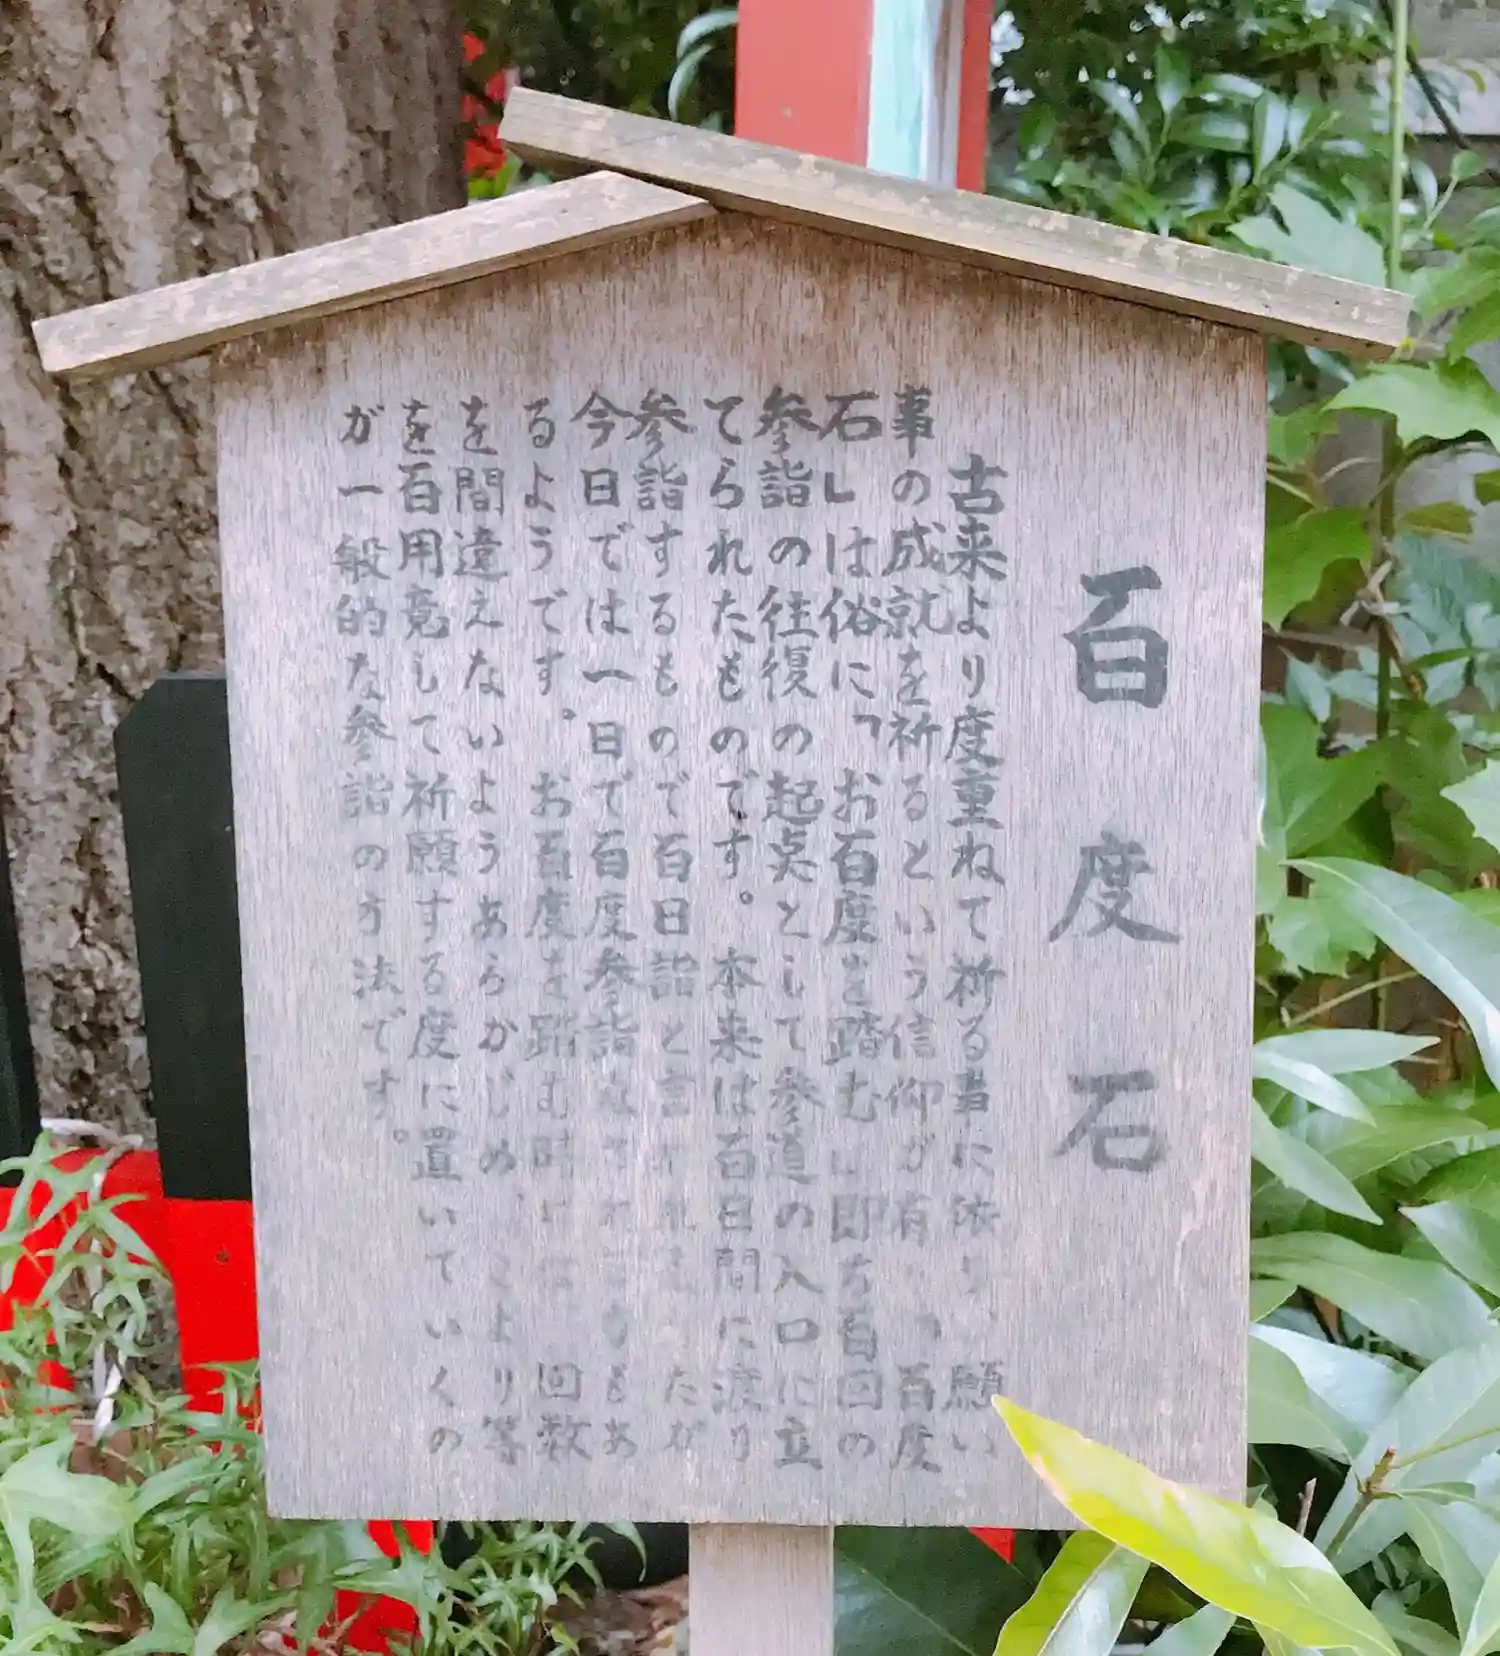 百度石
古来より度重ねて祈る事に依り、願い
事の成就を祈るという信仰が有 「百度
石」は俗に「お百度を踏む」即ち百回の
参詣の往復の起点として参道の入口に立
てられたものです。本来は百日間に渡り
参詣するもので百日詣と言われ ただ
今日では一日で百度参詣なされ もあ
るようです。お百度を踏む時には、回数
を間違えないようあらかじめ、こより等
を百用意して祈願する度に置いていくの
が一般的な参詣の方法です。